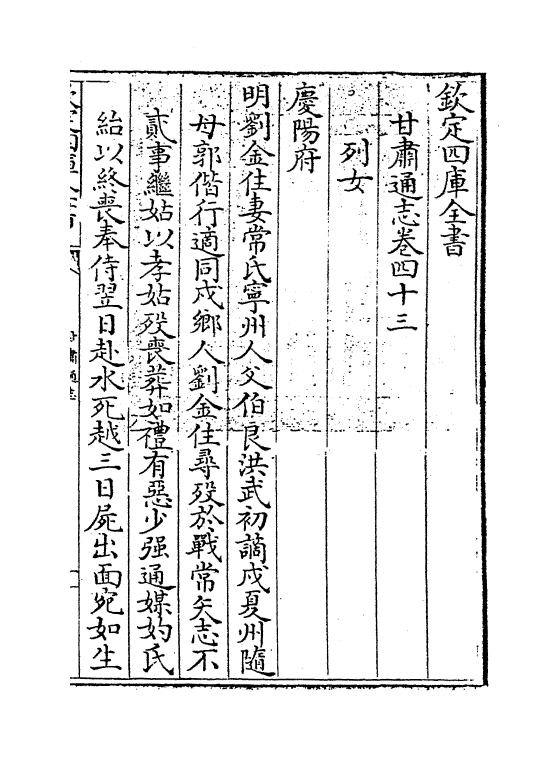 欽定四庫全書
甘肅通志卷四十三
列女
慶陽府
明劉金住妻常氏寧州人父伯良洪武初謫戍夏州隨
母郭偕行適同戍鄉人劉金住尋歿於戰常矢志不
貳事繼姑以孝姑歿喪葬如禮有惡少强通媒妁氏
紿以終喪奉侍翌日赴水死越三日屍出面宛如生
甘肅通志